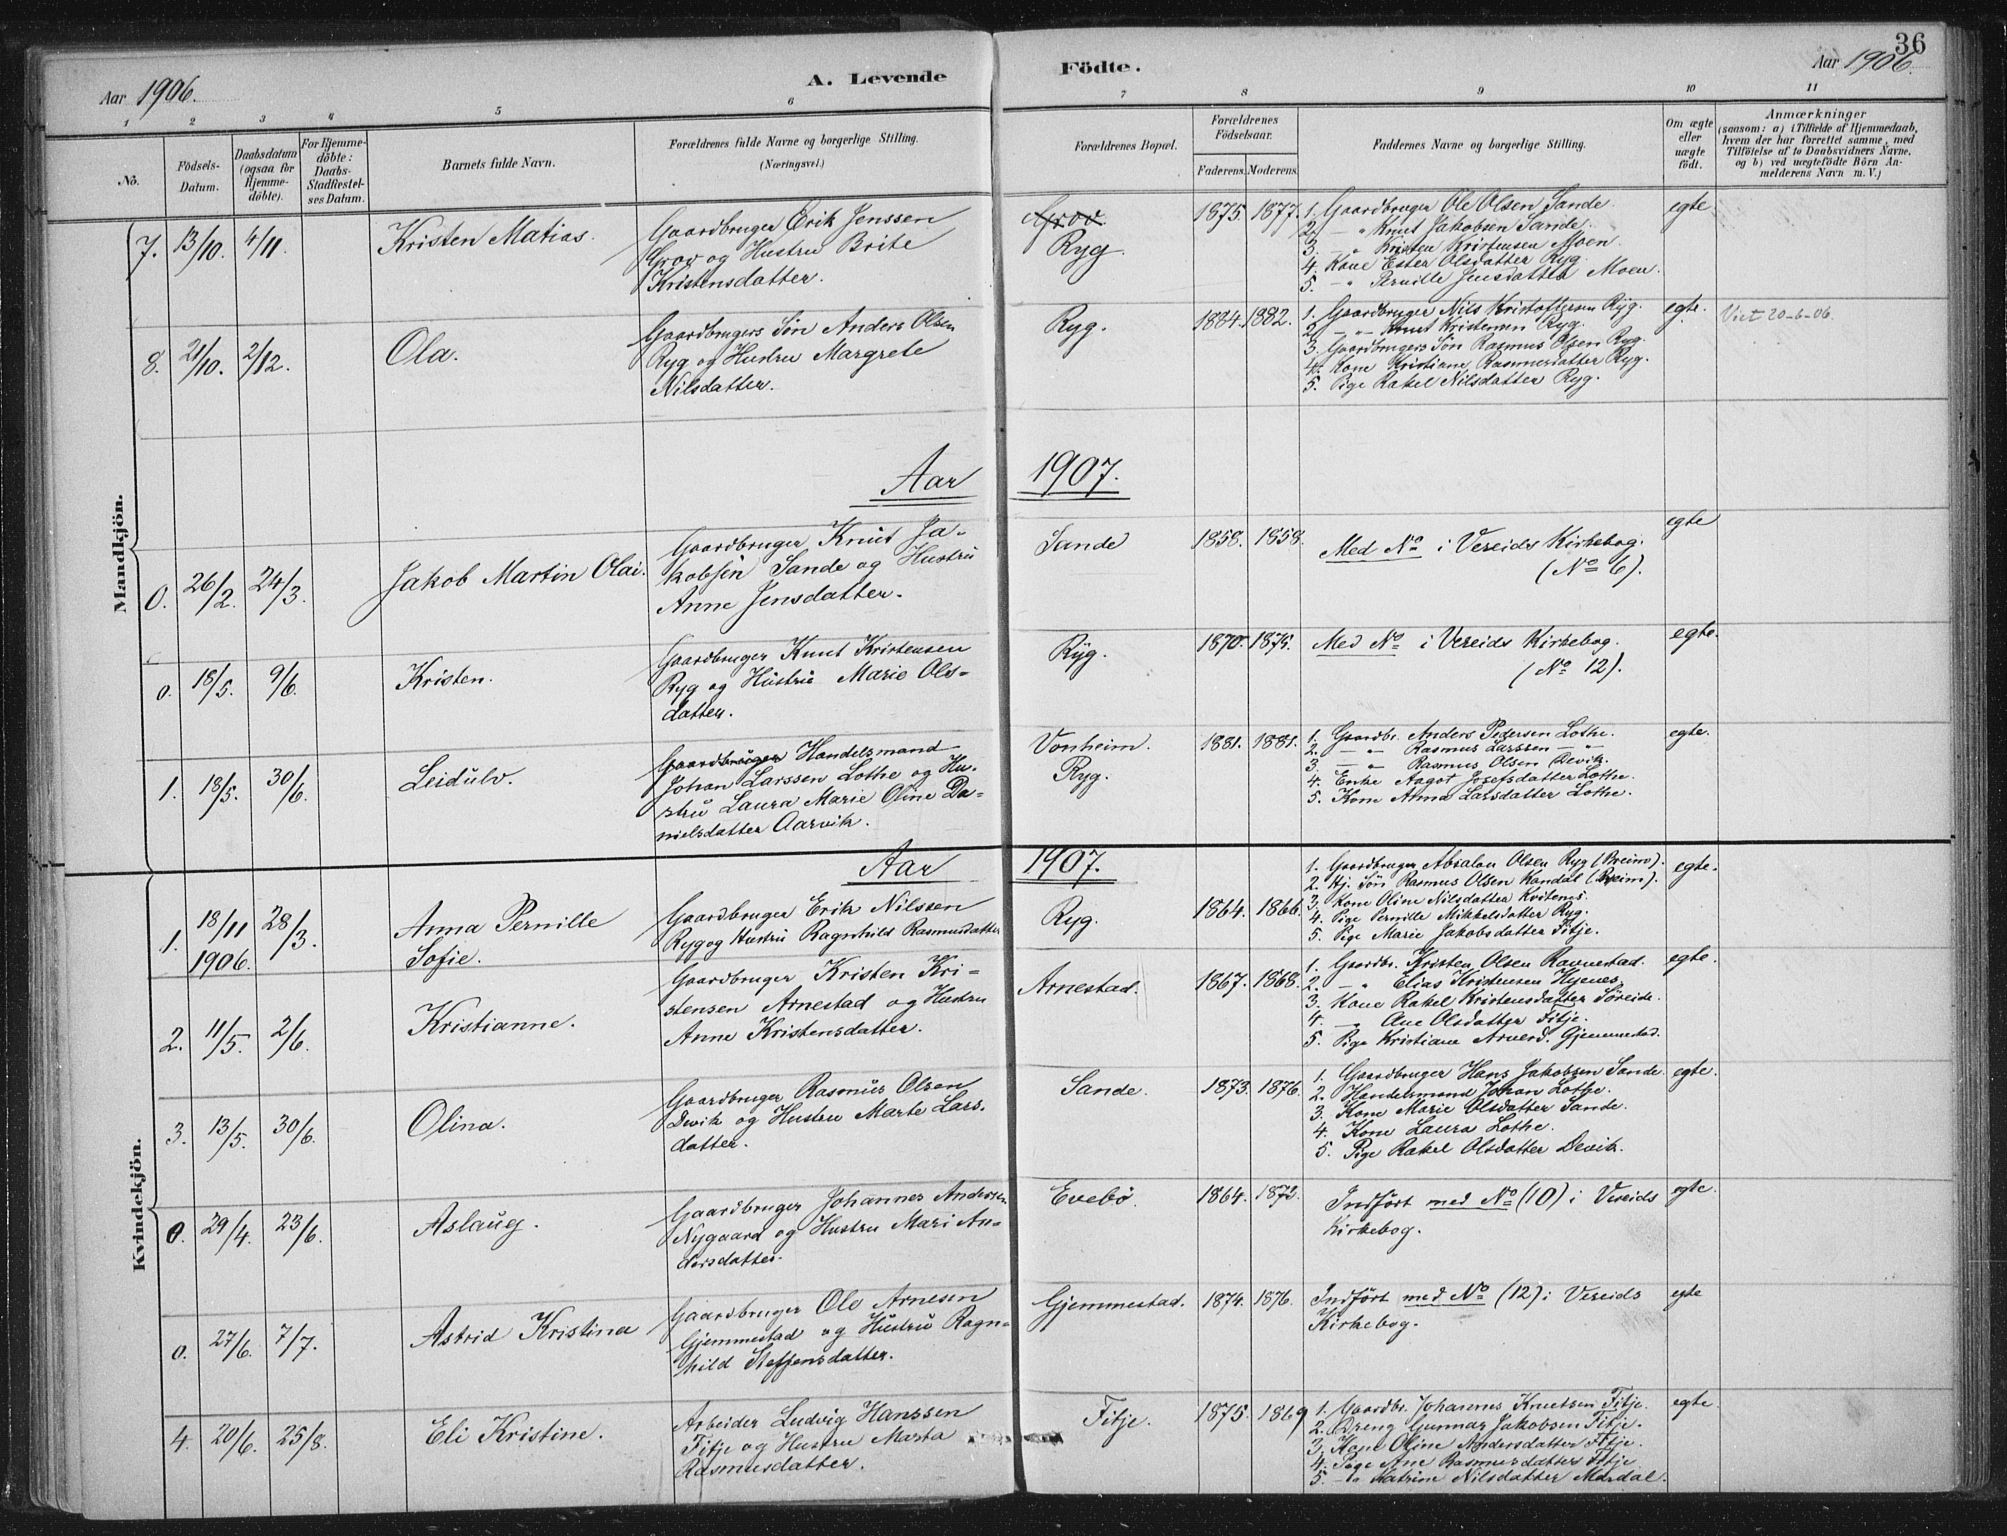 36
Aar 1906.
A. Levende
Födte.
Aar 1906.
1 2 3 4 5 6 7 8 9 10 11
No.
Födsels-
Datum.
Daabsdatum
(ogsaa for
Hjemme-
döbte).
For Hjemme-
döbte:
Daabs-
Stadfæstel-
ses Datum.
Barnets fulde Navn.
Forældrenes fulde Navne og borgerlige Stilling.
(Næringsvei.)
Forældrenes Bopæl.
Forældrenes
Födselsaar.
Faderens. Moderens.
Faddernes Navne og borgerlige Stilling.
Om ægte
eller
uægte
födt.
Anmærkninger
(saasom: a) i Tilfælde af Hjemmedaab,
hvem der har forrettet samme, med
Tilföielse af to Daabsvidners Navne,
og b) ved uægtefödte Börn An-
melderens Navn m. V.)
Mandkjön.
7. 13/10. 4/11. Kristen Matias.
Gaardbruger Erik Jenssen
Grov og Hustru Brite
Kristensdatter.
Grov
Ryg.
1875. 1877.
1. Gaardbruger Ole Olsen Sande.
2. — " Knut Jakobsen Sande.
3. — " Kristen Kristensen Moen.
4. Kone Ester Olsdatter Ryg.
5. — " Pernille Jensdatter Moen.
egte
8. 21/10. 2/12. Ola.
Gaardbrugers Sön Anders Olsen
Ryg og Hustru Margrete
Nilsdatter.
Ryg.
1884. 1882.
1. Gaardbruger Nils Kristoffersen Ryg.
2. — " — Knut Kristensen Ryg.
3. Gaardbrugers Sön Rasmus Olsen Ryg.
4. Kone Kristianne Rasmusdatter Ryg.
5. Pige Rakel Nilsdatter Ryg.
egte.
Viet 20-6-06.
Aar 1907.
0. 26/2. 24/3. Jakob Martin Olai.
Gaardbruger Knut Ja-
kobsen Sande og Hustru
Anne Jensdatter.
Sande
1858. 1858.
Med No i Vereids Kirkebog.
(No 6).
egte
0. 18/5. 9/6. Kristen.
Gaardbruger Knut Kristensen
Ryg og Hustru Marie Ols-
datter.
Ryg.
1870. 1875.
Med No i Vereids Kirkebog.
(No 12).
egte.
1. 18/5. 30/6. Leidulv.
Gaardbruger Handelsmand
Johan Larssen Lothe og Hu-
stru Laura Marie Oline Da-
nielsdatter Aarvik.
Vonheim.
Ryg.
1881. 1881.
1. Gaardbr. Anders Pedersen Lothe.
2. — " — Rasmus Larssen — " —
3. — " — Rasmus Olsen Devik.
4. Enke Aagot Josefsdatter Lothe.
5. Kone Anna Larsdatter Lothe.
egte.
Aar 1907.
Kvindekjön.
1. 18/11 1906. 28/3. Anna Pernille
Sofie.
Gaardbruger Erik Nilssen
Ryg og Hustru Ragnhild Rasmusdatter
Ryg.
1864. 1866.
1. Gaardbruger Absalon Olsen Ryg (Breim).
2. Gj. Sön Rasmus Olsen Kandal (Breim).
3. Kone Oline Nilsdatter Kvitenes.
4. Pige Pernille Mikkelsdatter Ryg.
5. Pige Marie Jakobsdatter Fitje.
egte.
2. 11/5. 2/6. Kristianne.
Gaardbruger Kristen Kri-
stensen Arnestad og Hustru
Anne Kristensdatter.
Arnestad.
1867. 1868.
1. Gaardbr. Kristen Olsen Ravnestad.
2. — " Elias Kristensen Hjenes.
3. Kone Rakel Kristensdatter Søreide.
4. — " Ane Olsdatter Fitje.
5. Pige Kristiane Arnesd. Gjemmestad.
egte.
3. 13/5. 30/6. Olina.
Gaardbruger Rasmus Olsen
Devik og Hustru Marte Lars-
datter.
Sande.
1873. 1876.
1. Gaardbruger Hans Jakobsen Sande.
2. Handelsmand Johan Lothe.
3. Kone Marie Olsdatter Sande.
4. Kone Laura Lothe.
5. Pige Rakel Olsdatter Devik.
egte.
0. 29/4. 23/6. Aslaug.
Gaardbruger Johannes Andersen
Nygaard og Hustru Mari An-
dersdatter.
Evebö.
1864. 1872.
Indfört med No (10) i Vereids
Kirkebog.
egte.
0. 27/6. 7/7. Astrid Kristina
Gaardbruger Ole Arnesen
Gjemmestad og Hustru Ragn-
hild Steffensdatter.
Gjemmestad.
1874. 1876.
Indfört med No (12) i Vereids
Kirkebog.
egte
4. 20/6. 25/8. Eli Kristine.
Arbeider Ludvig Hanssen
Fitje og Hustru Marta
Rasmusdatter.
Fitje.
1875. 1869
1. Gaardbr. Johannes Knutsen Fitje.
2. Dreng Gunnar Jakobsen Fitje.
3. Kone Oline Andersdatter Fitje.
4. Pige Ane Rasmusdatter Fitje
5. — " Katrine Nilsdatter Mardal.
egte